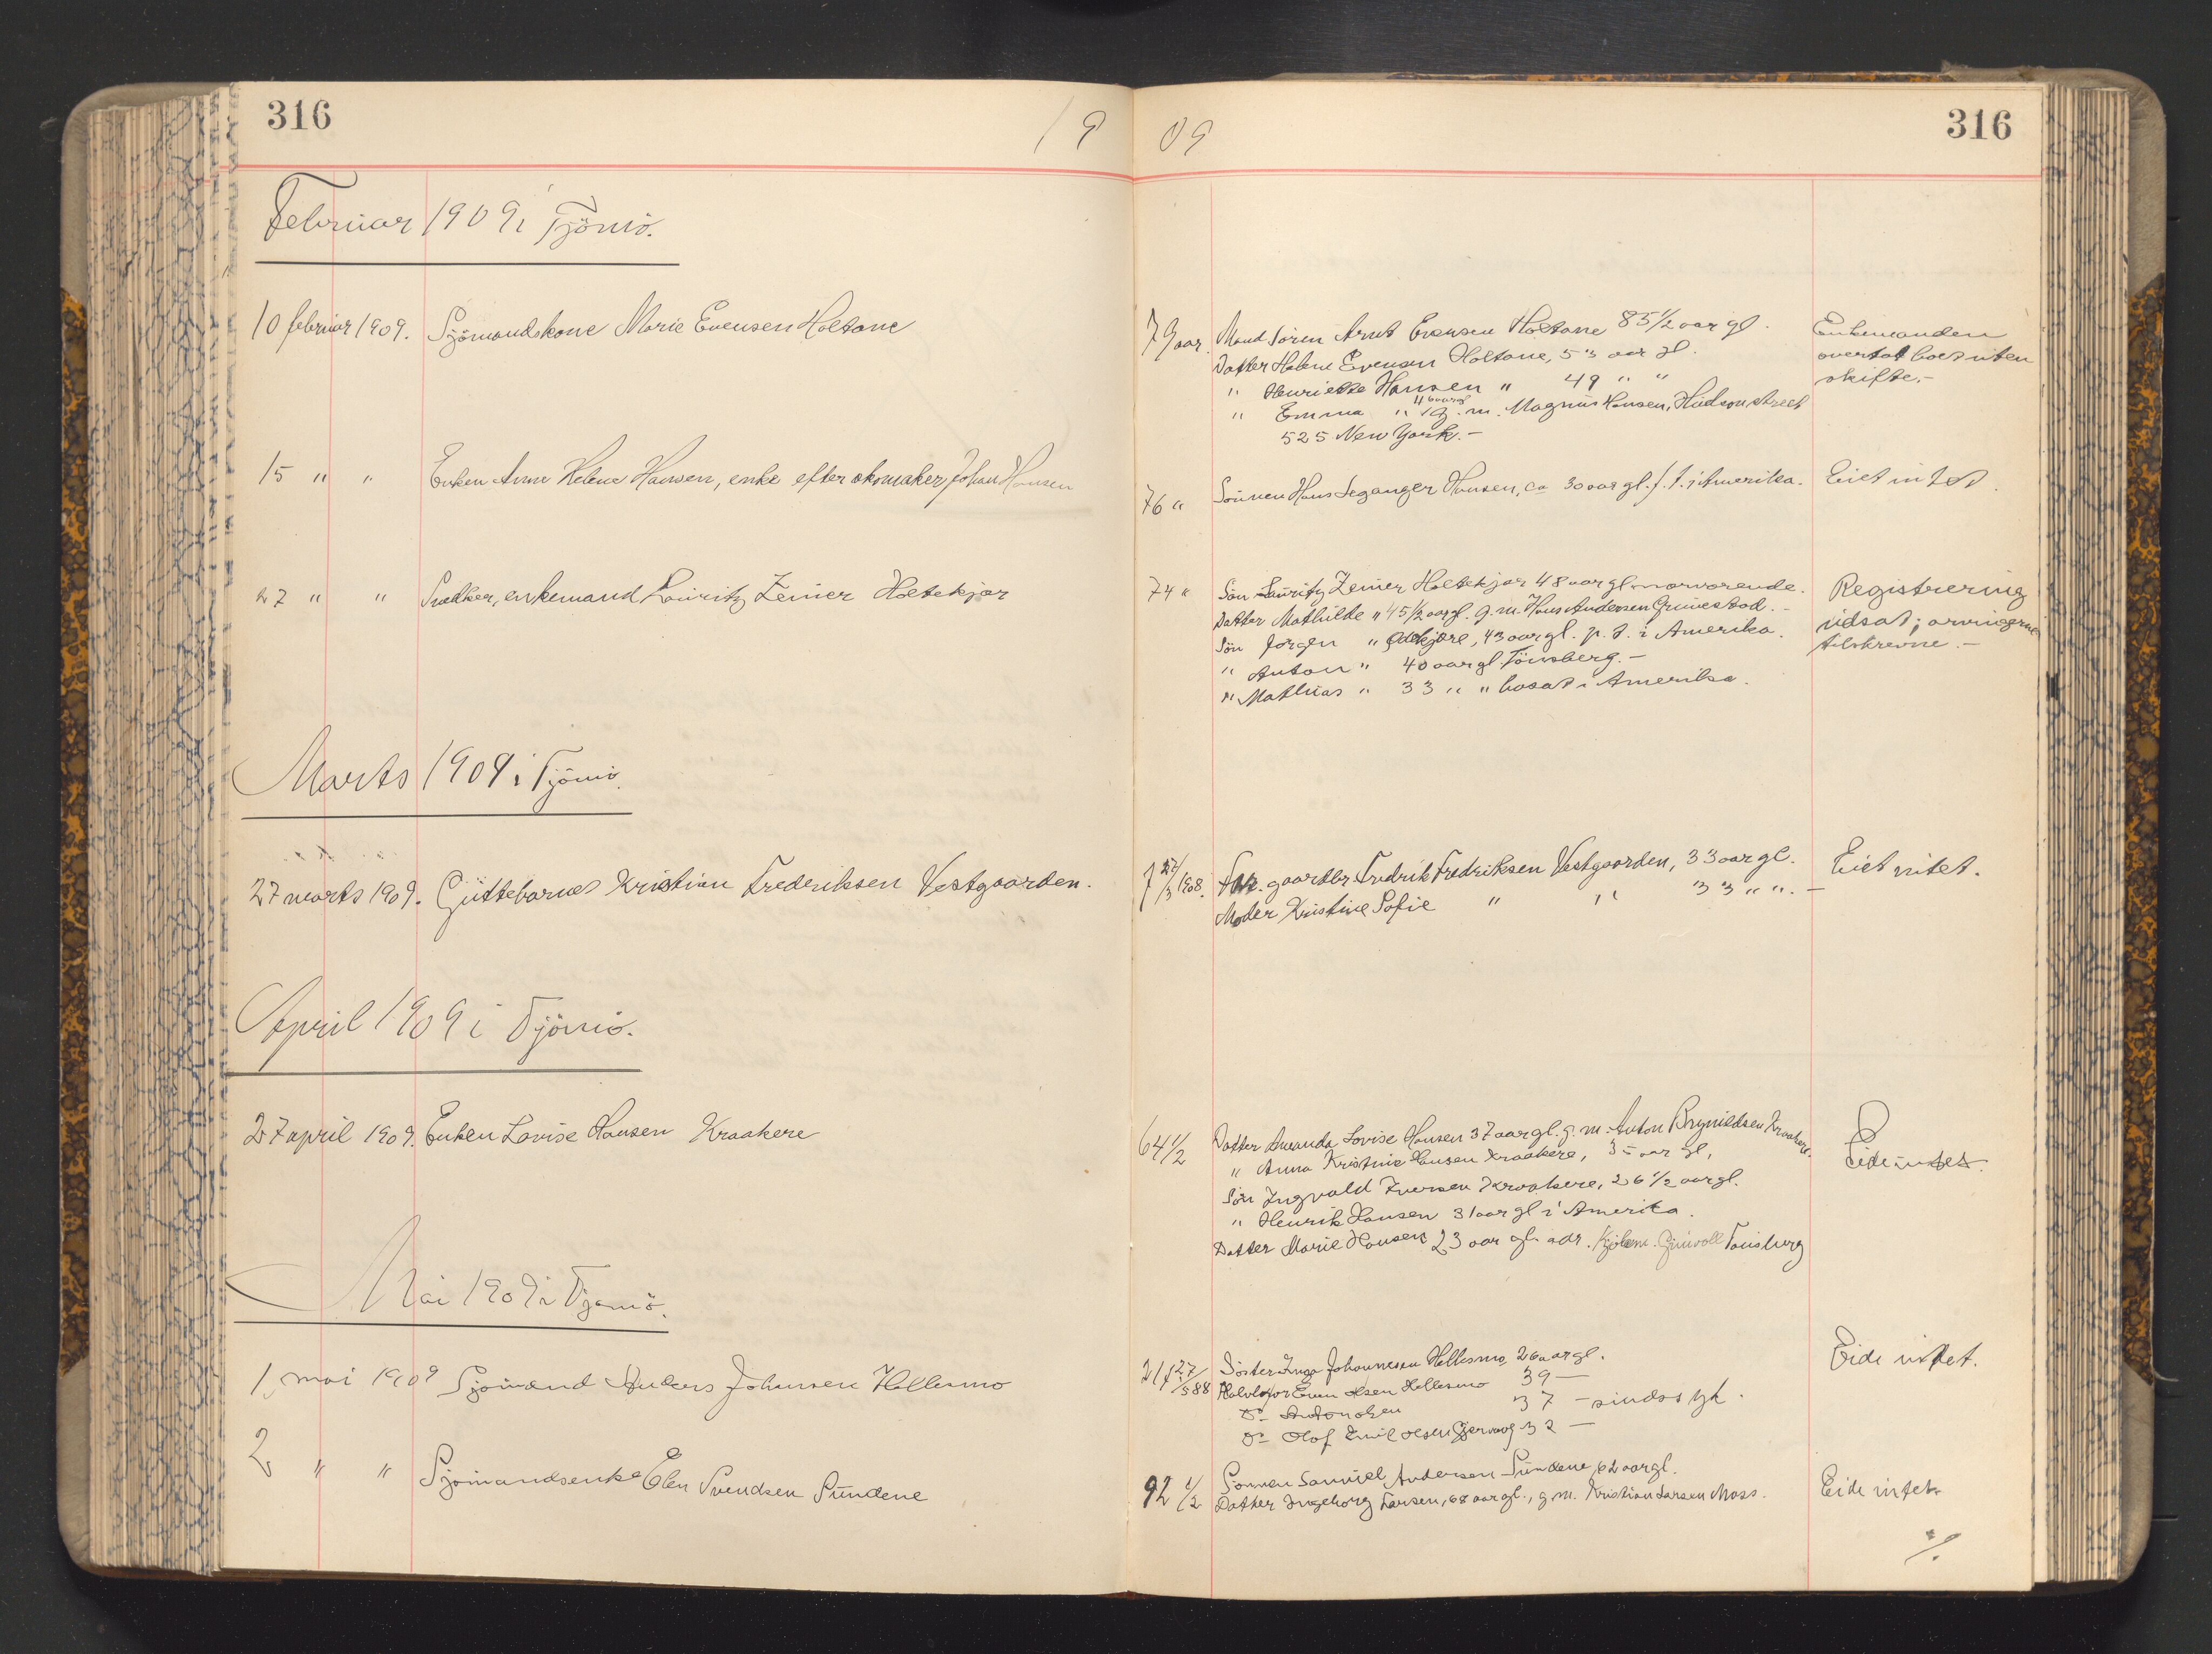 316
19 09
316
Februar 1909 i Tjömö.
10 februar 1909. Sjömandskone Marie Evensen Holtane
79 aar. Mand Sören Arnt Evensen Holtane 85 1/2 aar gl.
Datter Helene Evensen Holtane, 53 aar gl.
" Henriette Hansen " 49 " "
46 aar gl
" Emma " g. m. Magnus Hansen, Hudson street
525 New York. -
Enkemanden
overtat boet uten
skifte. -
15 " " Enken Anne Helene Hansen, enke efter skomaker Johan Hansen
76 " Sönnen Hans Seganger Hansen, ca 30 aar gl. f. t. i Amerika.
Eiet intet.
27 " " Snedker, enkemand Lauritz Zeiner Holtekjær
74 " Sön Lauritz Zeiner Holtekjær 48 aar gl. nærværende.
Datter Mathilde " 45 1/2 aar gl. g. m. Hans Andersen Grimestad. -
Sön Jörgen " 43 aar gl. p. t. i Amerika.
" Anton " 40 aar gl. Tönsberg. -
" Mathias " 33 " " bosat i Amerika.
Registrering
udsat; arvingerne
tilskrevne. -
Marts 1909 i Tjömö.
27 marts 1909. Guttebarnet Kristian Frederiksen Vestgaarden.
f 27/3 1908. Far. gaardbr. Fredrik Fredriksen Vestgaarden, 33 aar gl.
Moder Kristine Sofie " " 33 " ". -
Eiet intet.
April 1909 i Tjömö.
27 april 1909. Enken Lovise Hansen Kraakere
64 1/2
Datter Amanda Lovise Hansen 37 aar gl. g. m. Anton Brynildsen Kraakere.
" Anna Kristine Hansen Kraakere, 35 aar gl,
Sön Ingvald Iversen Kraakere, 26 1/2 aar gl.
" Henrik Hansen 31 aar gl i Amerika.
Datter Marie Hansen 23 aar gl. adr. Kjöbm. Tönsberg
Eide intet.
Mai 1909 i Tjömö.
1 mai 1909 Sjömand Anders Johnsen Hellesmo
21 f 27/5 88 Söster Inga Johannesen Hellesmo 26 aar gl.
Halvbror Even Olsen Hellesmo 39 -
Do Anton Olsen 37 - sindssyk.
Do Olof Emil Olsen 32 -
Eide intet.
2 " " Sjömandsenke Elen Svendsen Sundene
92 1/2 Sönnen Samuel Andersen Sundene 62 aar gl.
Datter Ingeborg Larsen, 68 aar gl., g. m. Kristian Larsen Moss.
Eide intet.
%